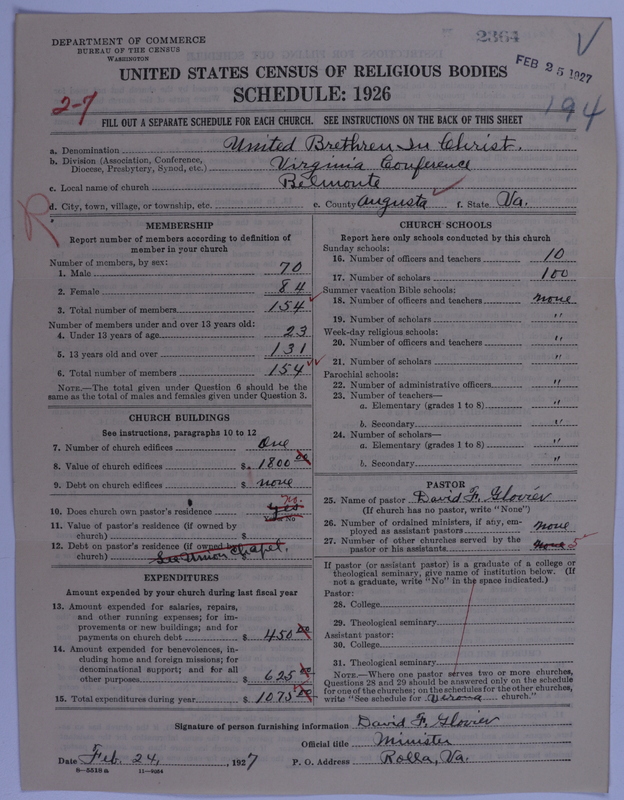 2364
FEB 25 1927
194
DEPARTMENT OF COMMERCE
BUREAU OF THE CENSUS
WASHINGTON
UNITED STATES CENSUS OF RELIGIOUS BODIES
SCHEDULE: 1926
2-7
FILL OUT A SEPARATE SCHEDULE FOR EACH CHURCH. SEE INSTRUCTIONS ON THE BACK OF THIS SHEET
a. Denomination United Brethren In Christ.
b. Division (Association, Conference, Diocese, Presbytery, Synod, etc.) Virginia Conference
c. Local name of church Belmonte
d. City, town, village, or township, etc. e. County Augusta f. State Va.
R
MEMBERSHIP
Report number of members according to definition of
member in your church
Number of members, by sex:
1. Male 70
2. Female 84
3. Total number of members 154
Number of members under and over 13 years old:
4. Under 13 years of age 23
5. 13 years old and over 131
6. Total number of members 154
NOTE.—The total given under Question 6 should be the
same as the total of males and females given under Question 3.
CHURCH BUILDINGS
See instructions, paragraphs 10 to 12
7. Number of church edifices One
8. Value of church edifices $ 1800 00
9. Debt on church edifices $ none
10. Does church own pastor's residence Yes no.
Yes or No
11. Value of pastor's residence (if owned by
church) $
12. Debt on pastor's residence (if owned by
church) See Union Chapel.
EXPENDITURES
Amount expended by your church during last fiscal year
13. Amount expended for salaries, repairs,
and other running expenses; for im-
provements or new buildings; and for
payments on church debt $ 450 00
14. Amount expended for benevolences, in-
cluding home and foreign missions; for
denominational support; and for all
other purposes $ 625 00
15. Total expenditures during year $ 1075 00
CHURCH SCHOOLS
Report here only schools conducted by this church
Sunday schools:
16. Number of officers and teachers 10
17. Number of scholars 100
Summer vacation Bible schools:
18. Number of officers and teachers none
19. Number of scholars "
Week-day religious schools:
20. Number of officers and teachers "
21. Number of scholars "
Parochial schools:
22. Number of administrative officers "
23. Number of teachers—
a. Elementary (grades 1 to 8) "
b. Secondary "
24. Number of scholars—
a. Elementary (grades 1 to 8) "
b. Secondary "
PASTOR
25. Name of pastor David F. Glovier
(If church has no pastor, write "None")
26. Number of ordained ministers, if any, em-
ployed as assistant pastors none
27. Number of other churches served by the
pastor or his assistants none 5
If pastor (or assistant pastor) is a graduate of a college or
theological seminary, give name of institution below. (If
not a graduate, write "No" in the space indicated.)
Pastor:
28. College
29. Theological seminary
Assistant pastor:
30. College
31. Theological seminary
NOTE.—Where one pastor serves two or more churches,
Questions 28 and 29 should be answered only on the schedule
for one of the churches; on the schedules for the other churches,
write "See schedule for Verona church."
Signature of person furnishing information David F. Glovier
Official title Minister
Date Feb. 24, 1927 P. O. Address Rolla, Va.
8—5518 a 11—9054